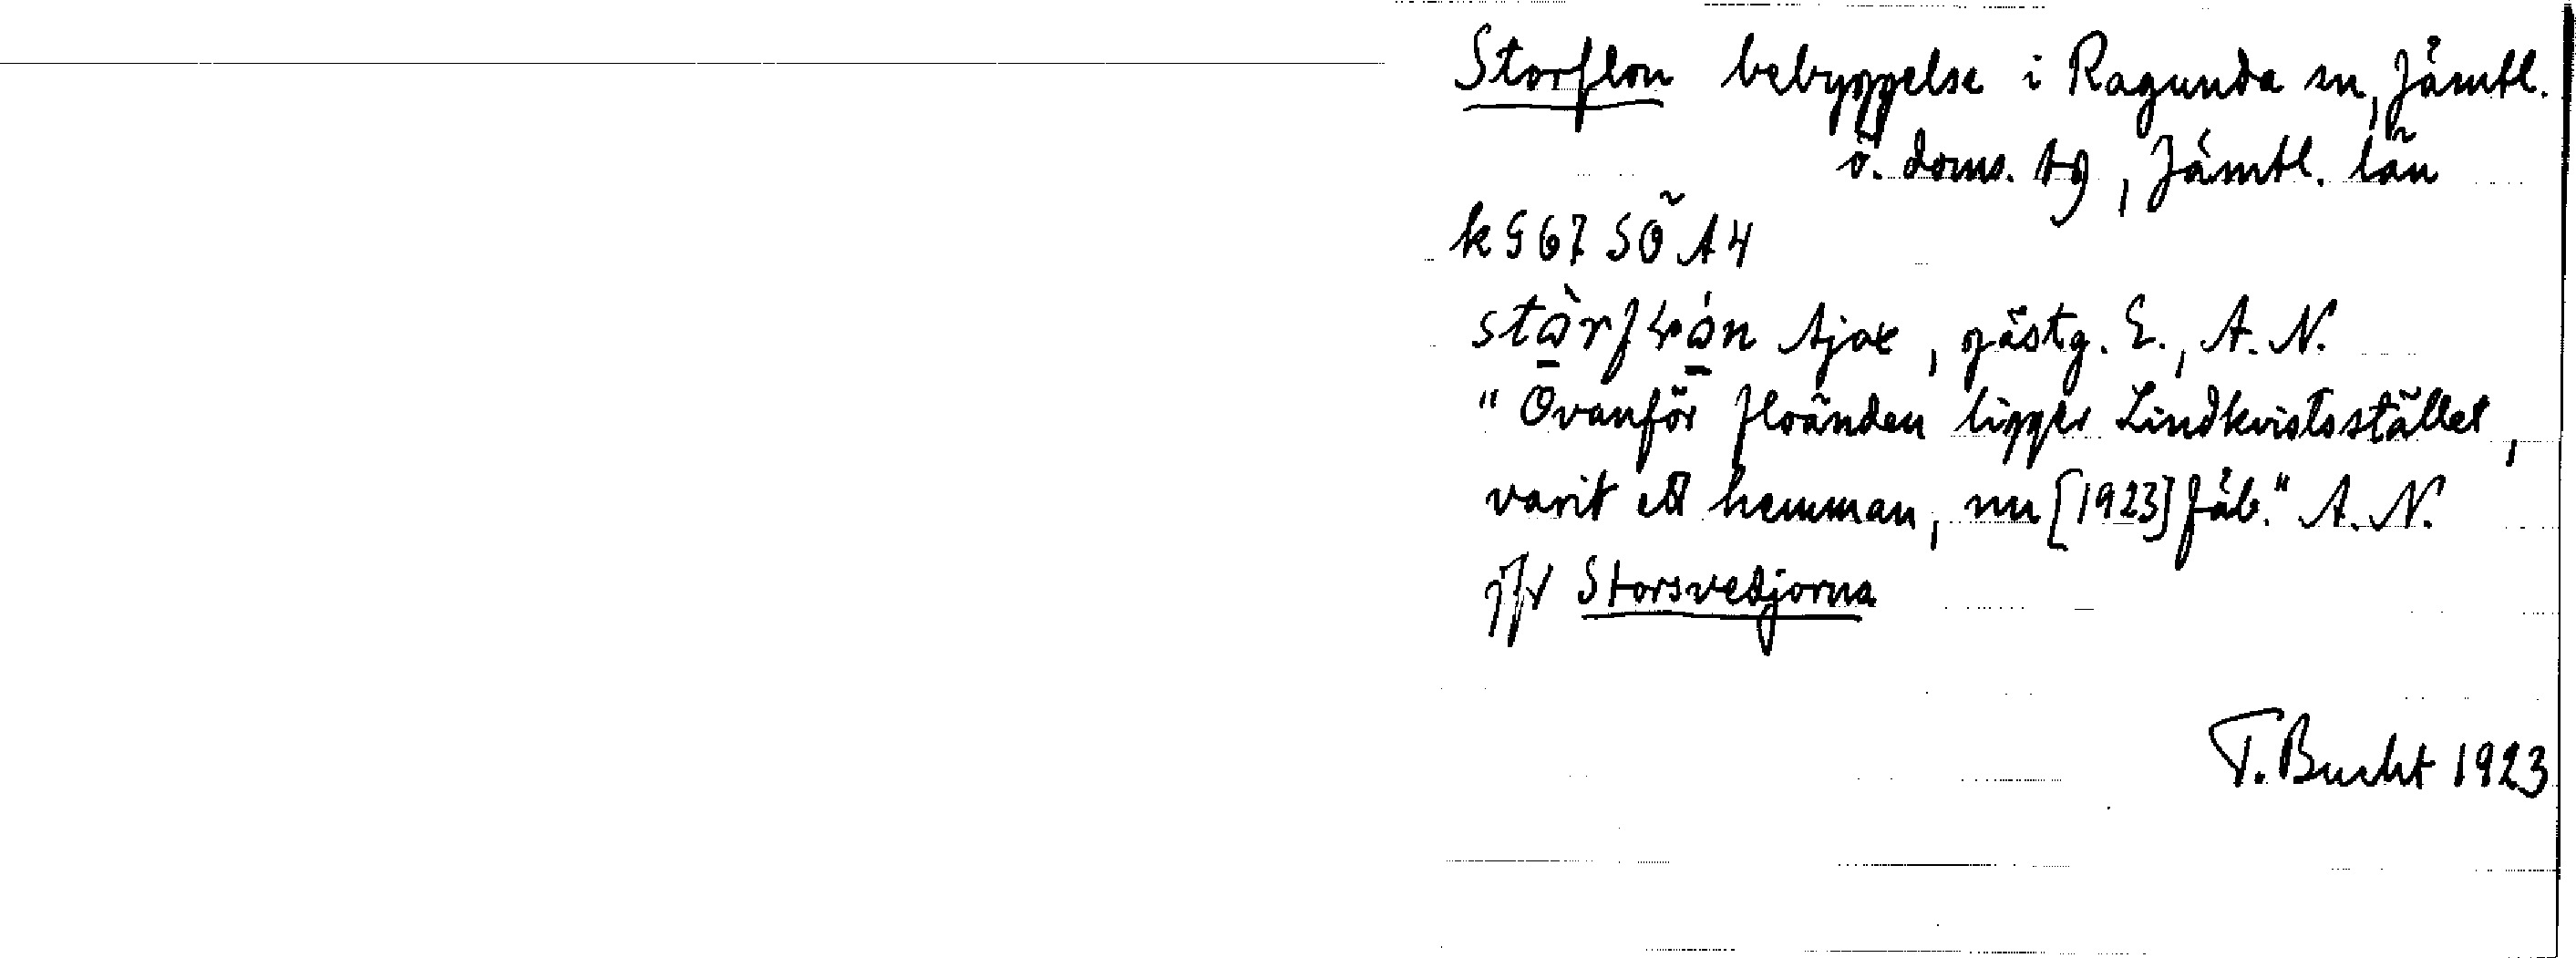 Storflon bebyggelse i Ragunda sn, Jämtl.
ö. doms. tg, Jämtl. län
k G 67 SÖ A 4
gästg. E., A. N.
"Ovanför floänden ligger Lindkvistsstället,
varit ett hemman, nu [1923] fäb." A. N.
jfr Storsvedjorna
T. Bucht 1923